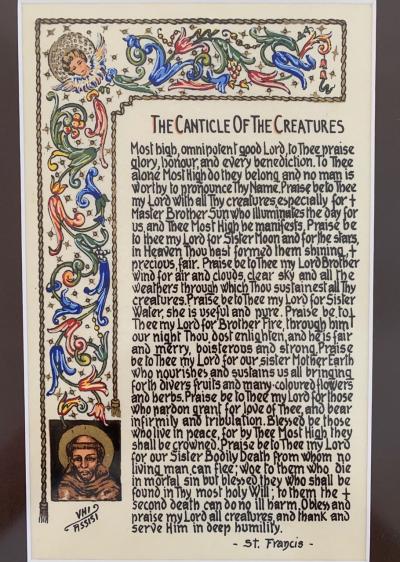 THE CANTICLE OF THE CREATURES
Most high, omnipotent good Lord, to Thee praise
glory, honour, and every benediction. To Thee
alone Most High do they belong and no man is
worthy to pronounce Thy Name. Praise be to Thee
my Lord with all Thy creatures, especially for +
Master Brother Sun who illuminates the day for
us, and Thee Most High he manifests. Praise be
to thee my Lord for Sister Moon and for the stars,
in Heaven Thou hast formed them shining, +
precious, fair. Praise be to Thee my Lord Brother
wind for air and clouds, clear sky and all the
weathers through which Thou sustainest all Thy
creatures. Praise be to Thee my Lord for Sister
Water, she is useful and pure. Praise be to +
Thee my Lord for Brother Fire, through him
our night Thou dost enlighten, and he is fair
and merry, boisterous and strong. Praise
be to Thee my Lord for our sister Mother Earth
who nourishes and sustains us all bringing
forth divers fruits and many-coloured flowers
and herbs. Praise be to Thee my Lord for those
who pardon grant for love of Thee, and bear
infirmity and tribulation. Blessed be those
who live in peace, for by Thee Most High they
shall be crowned. Praise be to Thee my Lord
for our Sister Bodily Death from whom no
living man can flee; woe to them who die
in mortal sin but blessed they who shall be
found in Thy most holy Will; to them the +
second death can do no ill harm. O bless and
praise my Lord all creatures, and thank and
serve Him in deep humility.
- St. Francis -
ASSISI